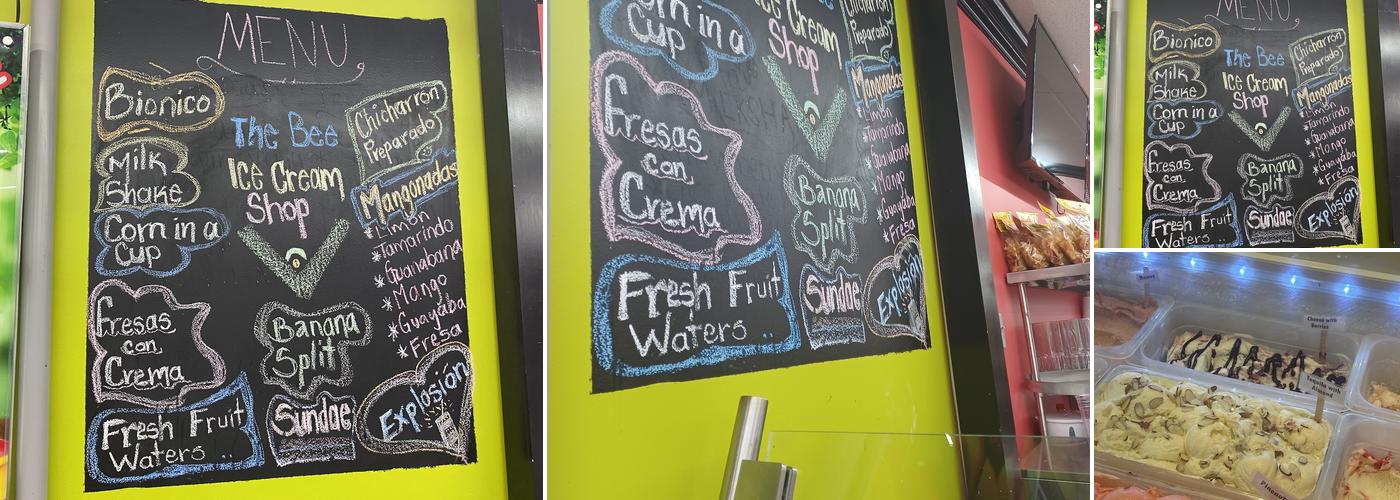 MENU
Bionico
Milk
Shake
Corn in a
Cup
Fresas
con
Crema
Fresh Fruit
Waters..
The Bee
Ice Cream
Shop
Banana
Split
Sundae
Chicharron
Preparado
Mangonadas
*Limon
*Tamarindo
*Guanabana
*Mango
*Guayaba
*Fresa
Explosión
Corn in a
Cup
Fresas
con
Crema
Fresh Fruit
Waters..
Ice Cream
Shop
Banana
Split
Sundae
Chicharron
Preparado
Mangonadas
*Limon
*Tamarindo
*Guanabana
*Mango
*Guayaba
*Fresa
Explosión
MENU
Bionico
Milk
Shake
Corn in a
Cup
Fresas
con
Crema
Fresh Fruit
Waters
The Bee
Ice Cream
Shop
Banana
Split
Sundae
Chicharron
Preparado
Mangonadas
*Limon
*Tamarindo
*Guanabana
*Mango
*Guayaba
*Fresa
Explosión
Cheese with
Berries
Tequila with
Almond